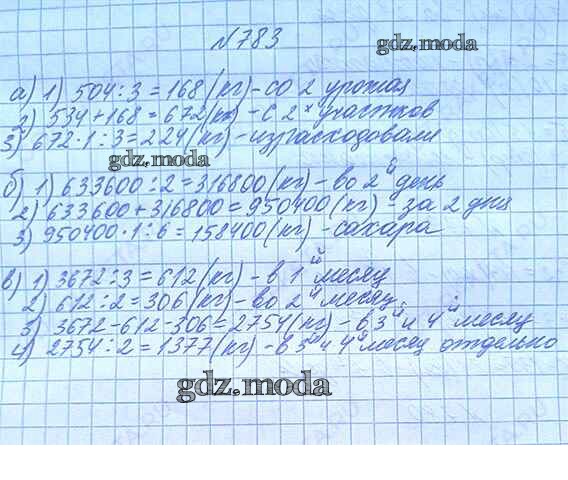 №783
gdz.moda
а) 1) 504:3=168 (кг)-со 2 урожая
2) 534+168=672 (кг) -с 2х участков
3) 672·1:3=224 (кг) -израсходовали
gdz.moda
б) 1) 633600:2=316800 (кг) - во 2й день
2) 633600+316800=950400 (кг) - за 2 дня
3) 950400·1:6=158400 (кг) -сахара
в) 1) 3672:3=612 (кг) - в 1й месяц
2) 612:2=306 (кг) - во 2й месяц
3) 3672-612-306=2754 (кг) - в 3й и 4й месяц
4) 2754:2=1377 (кг) - в 3й и 4й месяц отдельно
gdz.moda